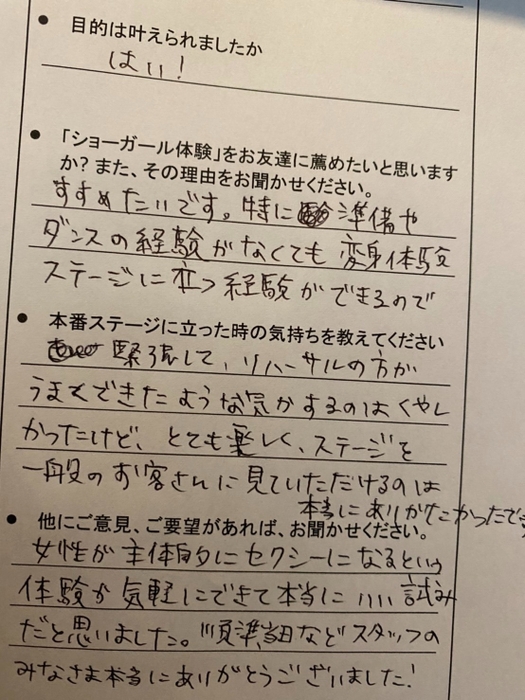 ● 目的は叶えられましたか
はい!
● 「ショーガール体験」をお友達に薦めたいと思います
か? また、その理由をお聞かせください。
すすめたいです。特に 準備や
ダンスの経験がなくても変身体験
ステージに立つ経験ができるので
● 本番ステージに立った時の気持ちを教えてください
緊張して、リハーサルの方が
うまくできたような気がするのはくやし
かったけど、とても楽しく、ステージを
一般のお客さんに見ていただけるのは
本当にありがたかったです
● 他にご意見、ご要望があれば、お聞かせください。
女性が主体的にセクシーになるという
体験が気軽にできて本当にいい試み
だと思いました。 当日などスタッフの
みなさま本当にありがとうございました!